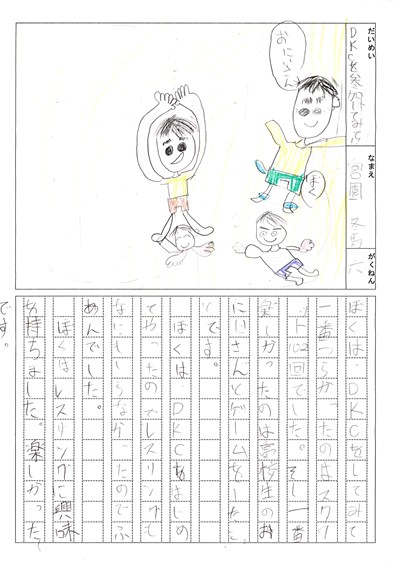 だいめい
DKCを参加してみて
なまえ
宮國
がくねん
六
おにいさん
ぼく
ぼくは、DKCをしてみて
一番つらかったのはスクワ
ット 回でした。そして一番
楽しかったのは高校生のお
にいさんとゲームをしたこ
とです。
ぼくは DKCをはじめ
てやったのでレスリングも
なにもしらなかったのでふ
あんでした。
ぼくはレスリングに興味
を持ちました。楽しかった
です。